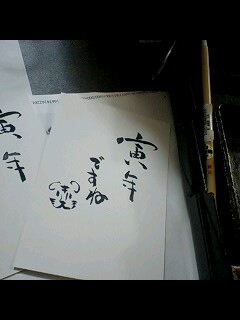 寅年
ですね
寅年